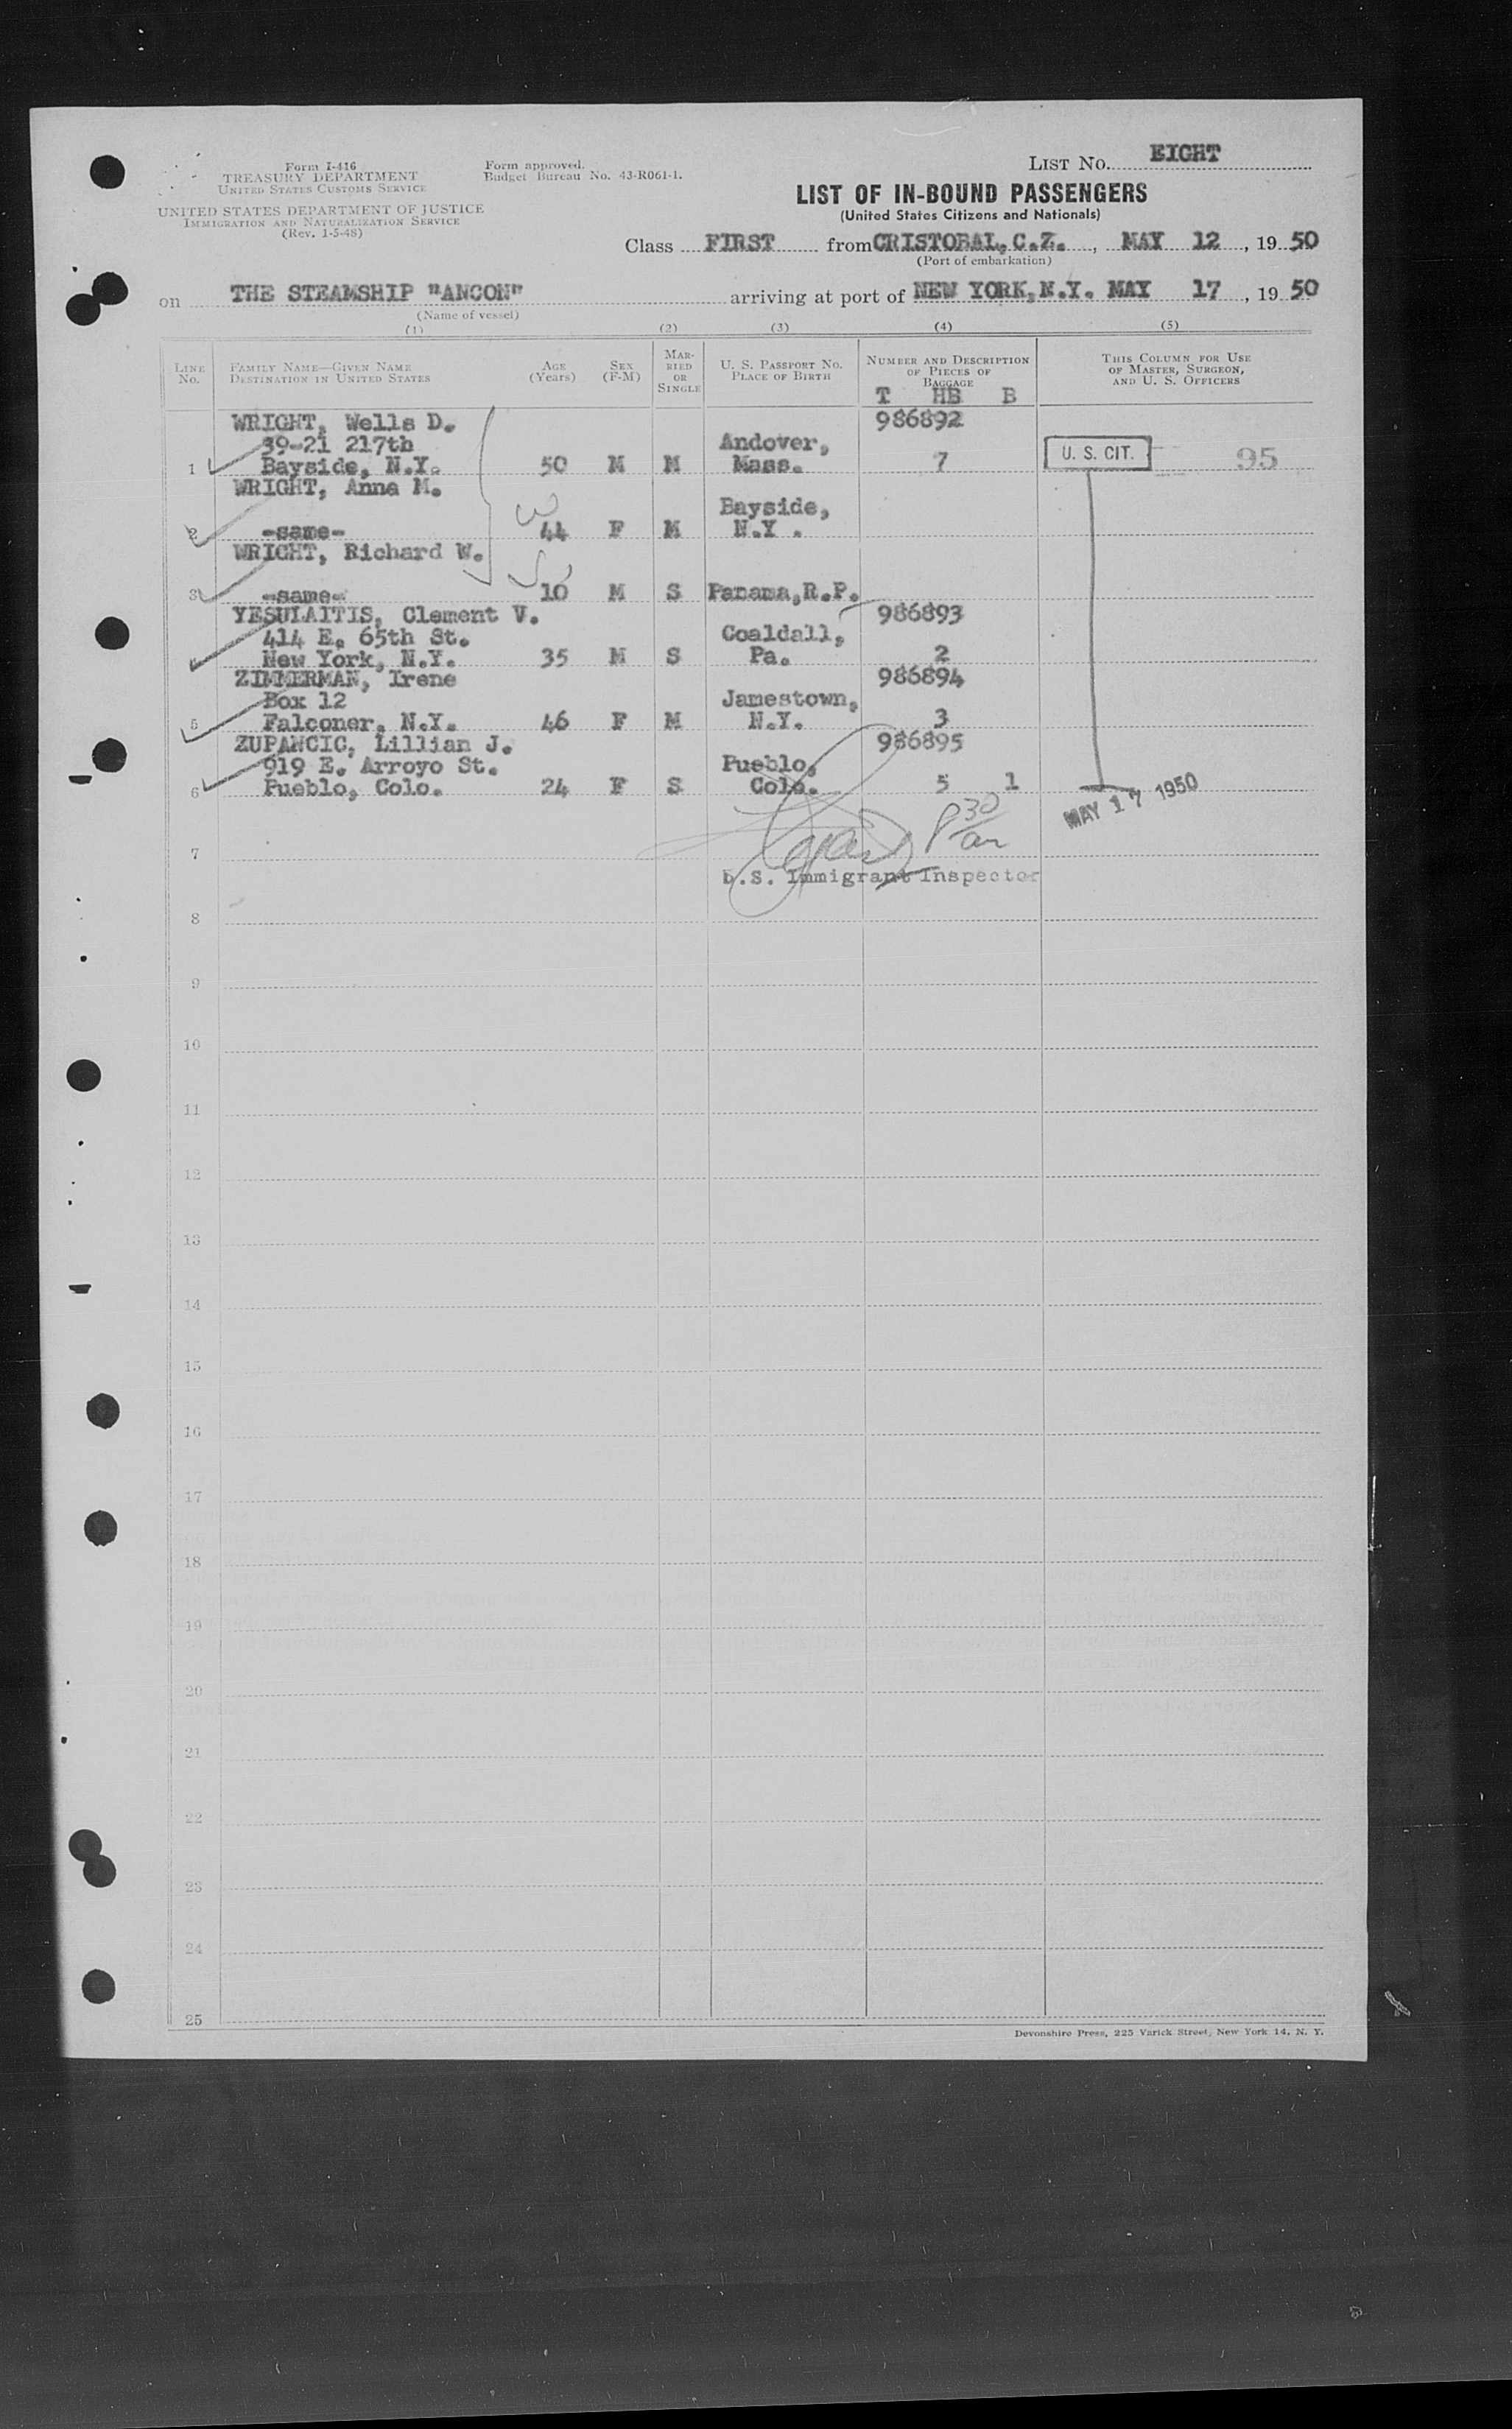 Form I-416
TREASURY DEPARTMENT
UNITED STATES CUSTOMS SERVICE
UNITED STATES DEPARTMENT OF JUSTICE
IMMIGRATION AND NATURALIZATION SERVICE
(Rev. 1-5-48)
Form approved.
Budget Bureau No. 43-R061-1.
LIST NO. EIGHT
LIST OF IN-BOUND PASSENGERS
(United States Citizens and Nationals)
Class FIRST from CRISTOBAL, C.Z., MAY 12, 19 50
(Port of embarkation)
on THE STEAMSHIP "ANCON" arriving at port of NEW YORK, N.Y. MAY 17, 19 50
(Name of vessel)
(1) (2) (3) (4) (5)
LINE NO.
FAMILY NAME—GIVEN NAME
DESTINATION IN UNITED STATES
AGE (Years)
SEX (F-M)
MARRIED OR SINGLE
U. S. PASSPORT NO.
PLACE OF BIRTH
NUMBER AND DESCRIPTION
OF PIECES OF
BAGGAGE
T HB B
THIS COLUMN FOR USE
OF MASTER, SURGEON,
AND U. S. OFFICERS
WRIGHT, Wells D. 986892
39-21 217th Andover,
1 Bayside, N.Y. 50 M M Mass. 7 U. S. CIT. 95
WRIGHT, Anna M.
Bayside,
2 -same- 44 F M N.Y.
WRIGHT, Richard W.
3 -same- 10 M S Panama, R.P.
YESULAITIS, Clement V. 986893
414 E. 65th St. Coaldall,
4 New York, N.Y. 35 M S Pa. 2
ZIMMERMAN, Irene 986894
Box 12 Jamestown,
5 Falconer, N.Y. 46 F M N.Y. 3
ZUPANCIC, Lillian J. 986895
919 E. Arroyo St. Pueblo,
6 Pueblo, Colo. 24 F S Colo. 5 1
MAY 17 1950
7
U.S. Immigrant Inspector
8
9
10
11
12
13
14
15
16
17
18
19
20
21
22
23
24
25
Devonshire Press, 225 Varick Street, New York 14, N. Y.